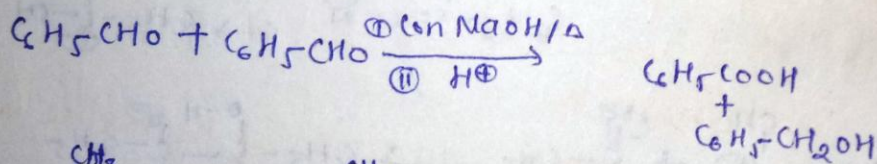 C6H5-CHO + C6H5-CHO ① Con NaOH/Δ
② H⊕
C6H5COOH
+
C6H5-CH2OH